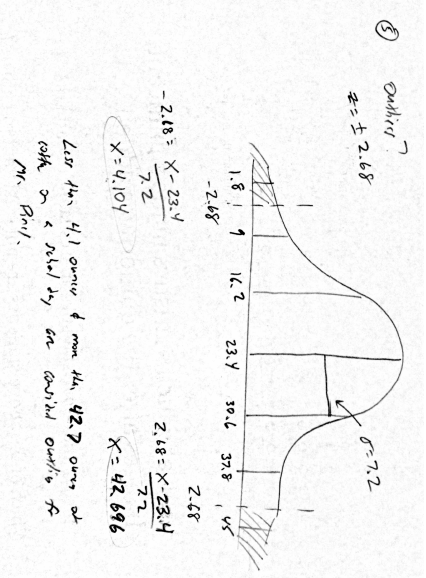 ⑤
outlier?
z = ± 2.68
σ = 7.2
1.8 9 16.2 23.4 30.6 37.8 45
-2.68 2.68
-2.68 = x - 23.4 / 7.2
2.68 = x - 23.4 / 7.2
x = 4.104
x = 42.696
Less than 4.1 ounces & more than 42.7 ounces of
coffee on a school day, are considered outliers for
Mr. Pines.